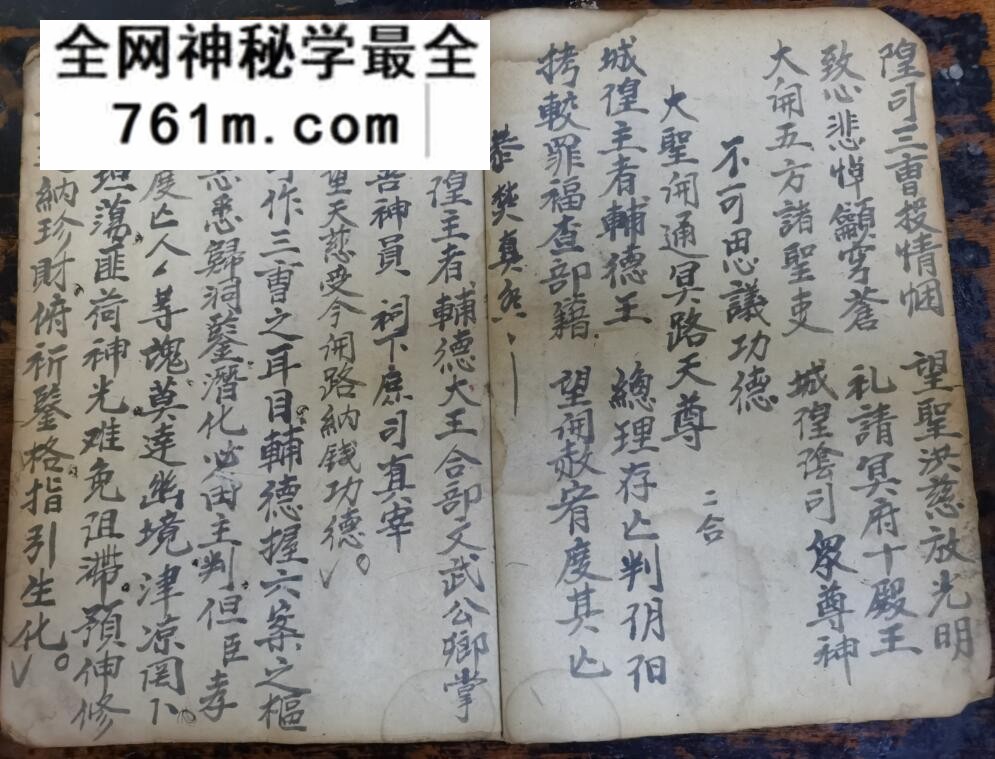 全网神秘学最全
761m.com
隍司三曹投情悃 望聖洪慈放光明
致心悲悼籲穹蒼 礼請冥府十殿王
大開五方諸聖吏 城隍陰司眾尊神
不可思議功德
大聖開通冥路天尊 二合
城隍主者輔德王 總理存亡判阴阳
拷較罪福查部籍 望開赦宥度其亡
恭焚真香
隍主者輔德大王合部文武公卿掌
善神員 祠下廪司真宰
天慈受今開路納錢功德
作三曹之耳目輔德握六案之樞
悉歸洞鑒潛化必由主判但臣孝
度亡人等魂莫達幽境津凉罔卜
坦蕩匪荷神光难免阻滯預伸修
納珍財俯祈鑒格指引生化